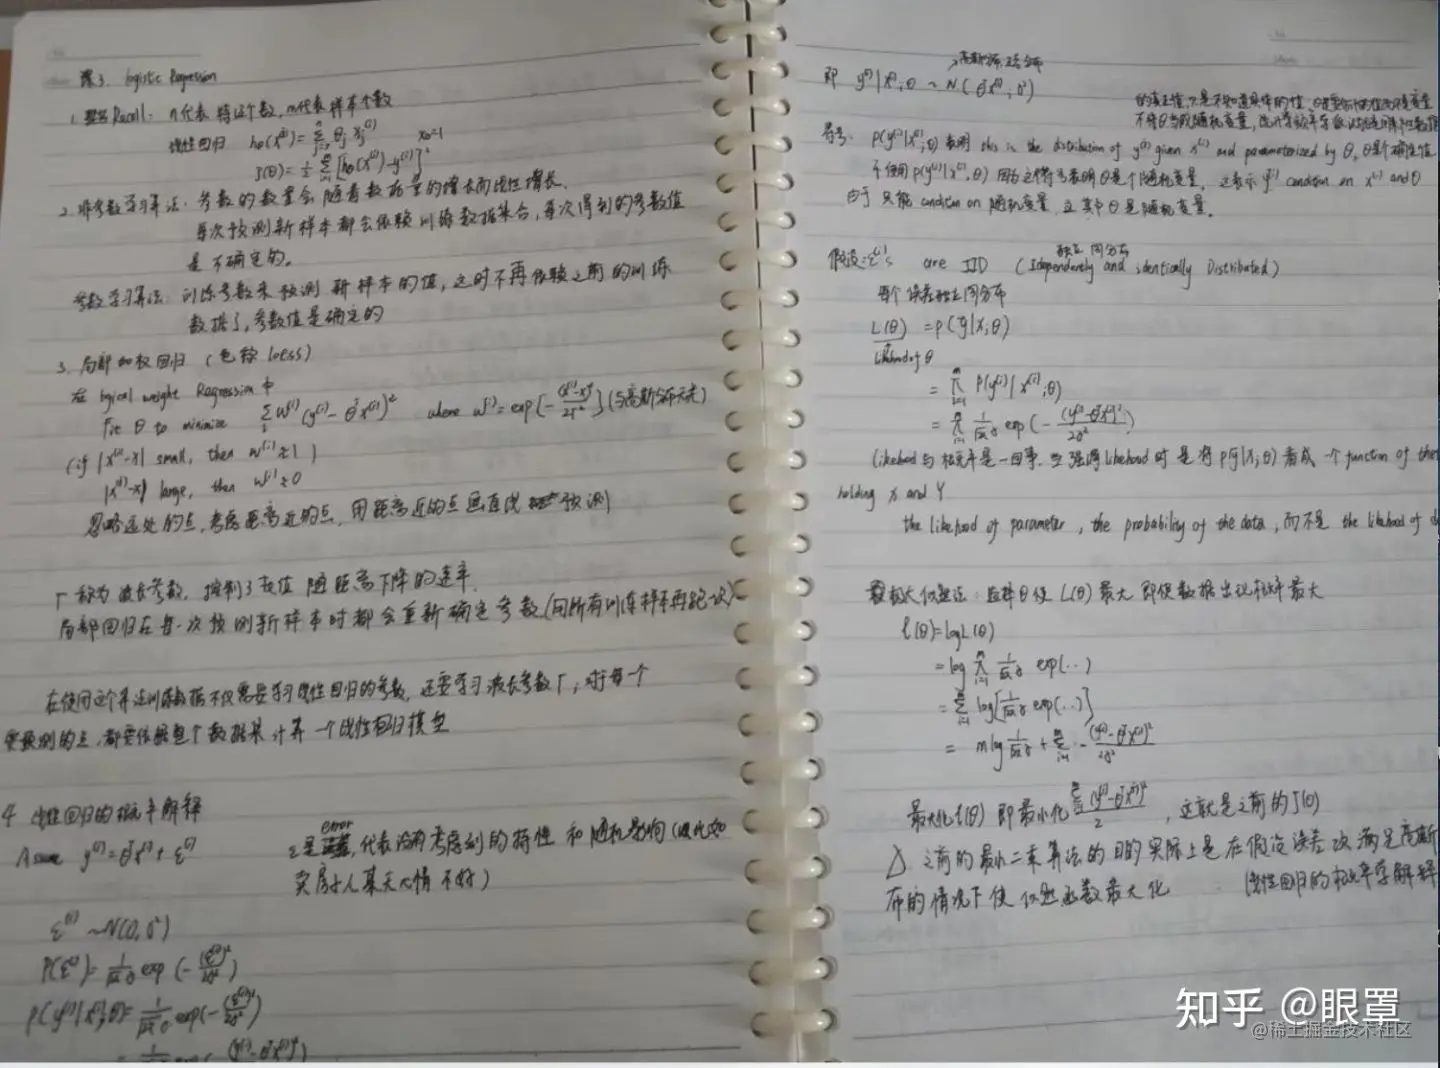 课3. logistic Regression
1. Recall: n代表特征个数, m代表样本个数
线性回归 hθ(x⁽ⁱ⁾)=Σθⱼxⱼ⁽ⁱ⁾ x₀=1
J(θ)=½Σ[hθ(x⁽ⁱ⁾)-y⁽ⁱ⁾]²
2. 非参数学习算法: 参数的数量会随着数据量的增长而线性增长.
每次预测新样本都会依赖训练数据集合, 每次得到的参数值
是不确定的。
参数学习算法: 训练参数来预测新样本的值, 这时不再依赖之前的训练
数据了, 参数值是确定的
3. 局部加权回归 (也称loess)
在 logical weight Regression 中
Fit θ to minimize Σw⁽ⁱ⁾(y⁽ⁱ⁾-θᵀx⁽ⁱ⁾)² where w⁽ⁱ⁾=exp(-(x⁽ⁱ⁾-x)²/2τ²) (与高斯分布无关)
(if |x⁽ⁱ⁾-x| small, then w⁽ⁱ⁾≈1)
|x⁽ⁱ⁾-x| large, then w⁽ⁱ⁾≈0
忽略远处的点, 考虑距离近的点, 用距离近的点画直线 预测
τ称为波长参数, 控制了权值随距离下降的速率.
局部回归在每一次预测新样本时都会重新确定参数(向所有训练样本再跑一次)
在使用这个算法训练数据不仅需要学习线性回归的参数, 还要学习波长参数τ, 对每一个
要预测的点, 都要依据整个数据集计算一个线性回归模型
4 线性回归的概率解释
Assume y⁽ⁱ⁾=θᵀx⁽ⁱ⁾+ε⁽ⁱ⁾
error
ε是 , 代表没有考虑到的特性和随机影响 (比如
卖房子人某天心情不好)
ε⁽ⁱ⁾~N(0,σ²)
P(ε⁽ⁱ⁾)=1/√2πσ exp(-(ε⁽ⁱ⁾)²/2σ²)
p(y⁽ⁱ⁾|x⁽ⁱ⁾;θ)=1/√2πσ exp(-(ε⁽ⁱ⁾)²/2σ²)
即 y⁽ⁱ⁾|x⁽ⁱ⁾;θ ~ N(θᵀx⁽ⁱ⁾, σ²)
符号: P(y⁽ⁱ⁾|x⁽ⁱ⁾;θ) 表明 this is the distribution of y⁽ⁱ⁾ given x⁽ⁱ⁾ and parameterized by θ, θ是个确定值
不使用p(y⁽ⁱ⁾|x⁽ⁱ⁾,θ) 因为这符号表明θ是个随机变量, 这表示 y⁽ⁱ⁾ condition on x⁽ⁱ⁾ and θ
由于只能 condition on 随机变量, θ是随机变量。
独立 同分布
假设: ε⁽ⁱ⁾'s are IID (Independently and identically Distributed)
每个误差独立同分布
L(θ) =p(y|x;θ)
likelihood of θ
=∏P(y⁽ⁱ⁾|x⁽ⁱ⁾;θ)
=∏1/√2πσ exp(-(y⁽ⁱ⁾-θᵀx⁽ⁱ⁾)²/2σ²)
likelihood与概率是一回事. 强调likelihood时是将p(y|x;θ)看成一个function of
holding x and Y
the likelihood of parameter, the probability of the data, 而不是 the likelihood of
极大似然法: 选择θ使L(θ)最大 即使数据出现概率最大
ℓ(θ)=logL(θ)
=log∏1/√2πσ exp(..)
=Σlog[1/√2πσ exp(..)]
= mlog1/√2πσ+Σ-(y⁽ⁱ⁾-θᵀx⁽ⁱ⁾)²/2σ²
最大化ℓ(θ) 即最小化Σ(y⁽ⁱ⁾-θᵀx⁽ⁱ⁾)²/2, 这就是之前的J(θ)
△ 之前的最小二乘算法的目的实际上是在假设误差项满足高斯
布的情况下使似然函数最大化 (线性回归的概率学解释
知乎 @眼罩
@稀土掘金技术社区